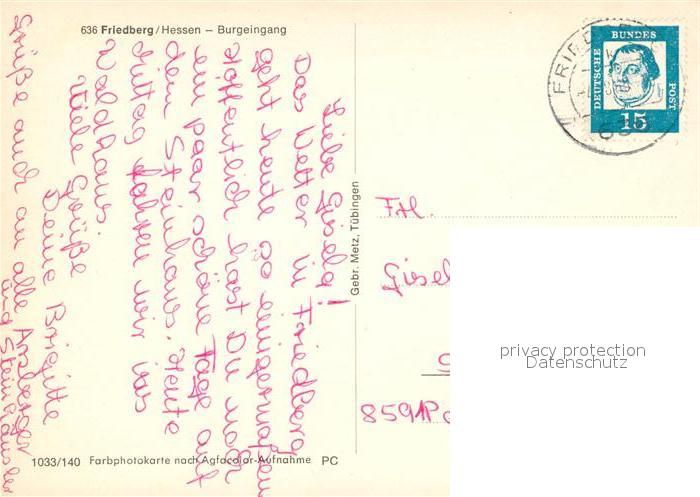 636 Friedberg/Hessen – Burgeingang
Liebe Gisela!
Das Wetter in Friedberg
geht heute so einigermaßen
Hoffentlich hast Du noch
ein paar schöne Tage auf
dem Steinhaus. Heute
Mittag fahren wir ins
Waldhaus.
Viele Grüße
Deine Brigitte
Grüße auch an alle
und Steinhäusler
Gebr. Metz, Tübingen
1033/140 Farbphotokarte nach Agfacolor-Aufnahme PC
DEUTSCHE
BUNDES
POST
15
FRIEDB
Frl.
Gisel
8591
privacy protection
Datenschutz